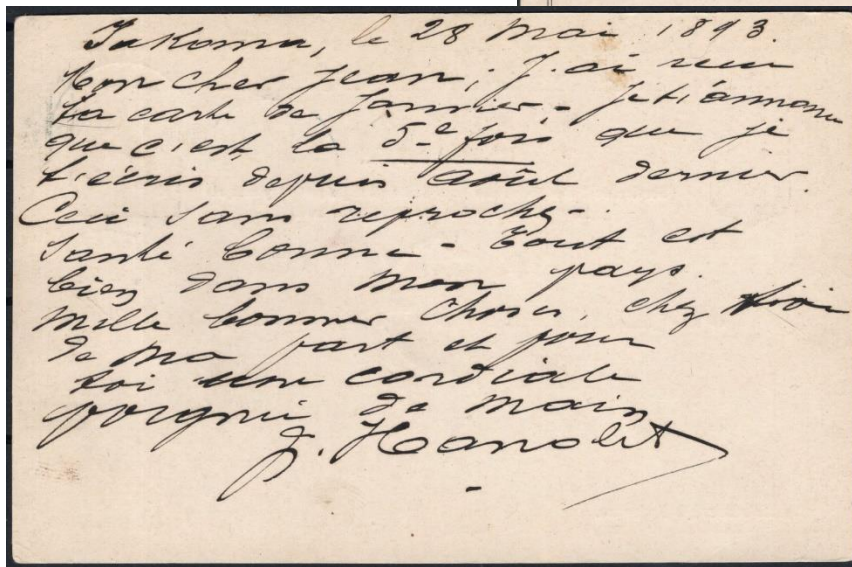 Jakoma, le 28 Mai 1893.
Mon cher Jean, J'ai reçu
ta carte de Janvier - Je t'annonce
que c'est la 5e fois que je
t'écris depuis août dernier.
Ceci sans reproche -
Santé bonne - Tout est
bien dans mon pays.
Mille bonnes choses, chez toi
de ma part et pour
toi une cordiale
poignée de main
J. Hanolet